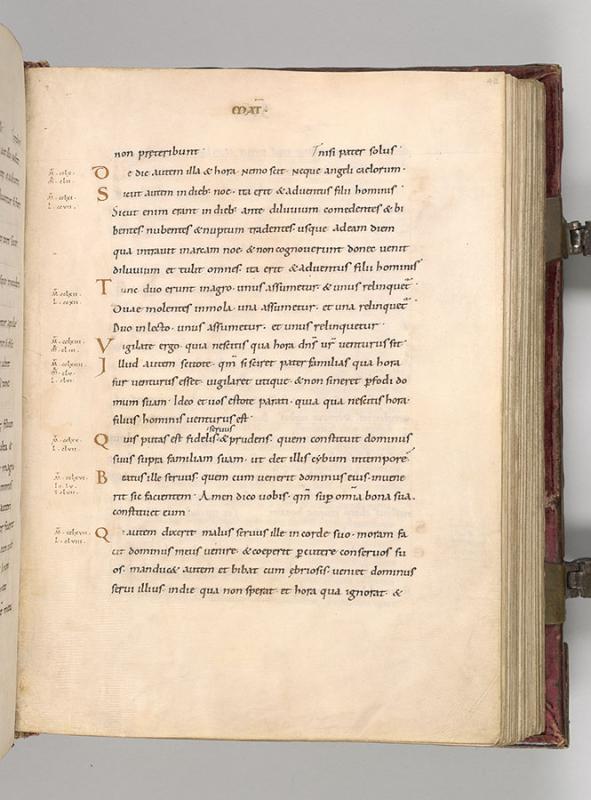 MAT
42
non preteribunt · nisi pater solus ·
De die autem illa & hora · Nemo scit · Neque angeli caelorum ·
Sicut autem in dieb; noe · ita erit & adventus filii hominis ·
Sicut enim erant in dieb; ante diluvium comedentes & bi
bentes nubentes & nuptum tradentes usque ad eam diem
qua intravit in arcam noe · & non cognoverunt donec venit
diluvium et tulit omnes · ita erit & adventus filii hominis
Tunc duo erunt in agro · unus assumetur · & unus relinquet
Duae molentes in mola · una assumetur · et una relinquet
Duo in lecto · unus assumetur · et unus relinquetur ·
Vigilate ergo · quia nescitis qua hora dns vr venturus sit
Illud autem scitote · qm si sciret pater familias qua hora
fur venturus esset · vigilaret utique · & non sineret pfodi do
mum suam · Ideo et vos estote parati · quia qua nescitis hora ·
filius hominis venturus est ·
servus
Quis putas est fidelis & prudens · quem constituit dominus
suus supra familiam suam · ut det illis cybum in tempore
Beatus ille servus · quem cum venerit dominus eius · invene
rit sic facientem · Amen dico vobis · qm sup omia bona sua ·
constituet eum ·
Q autem dixerit malus servus ille in corde suo · moram fa
cit dominus meus venire · & coeperit pcutere conservos su
os · manduc& autem et bibat cum ebriosis · veniet dominus
servi illius · in die qua non sperat · et hora qua ignorat · &